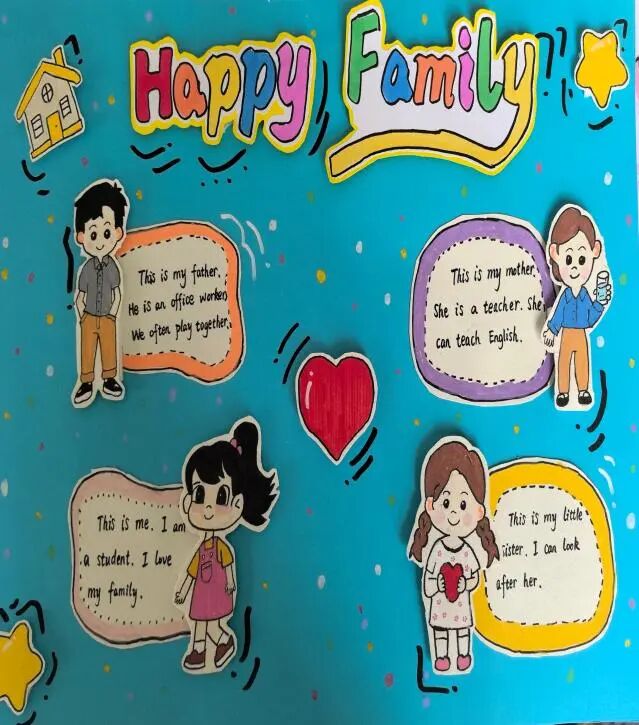 Happy Family
This is my father.
He is an office worker.
We often play together.
This is my mother.
She is a teacher. She
can teach English.
This is me. I am
a student. I love
my family.
This is my little
sister. I can look
after her.